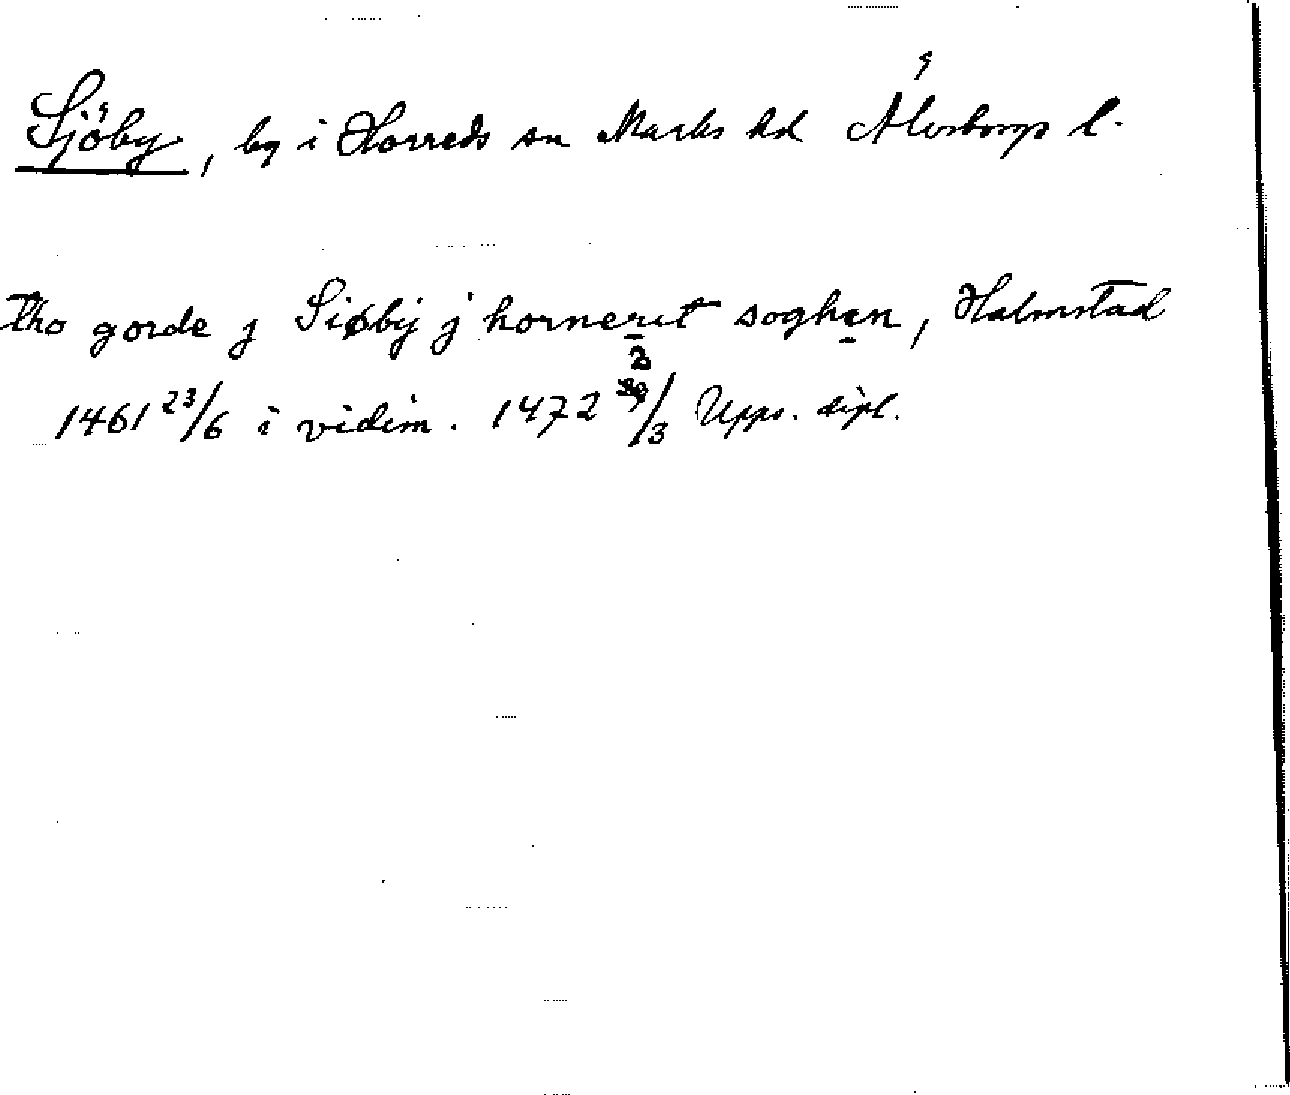 Sjöby, by i Horreds sn Marks hd Älvsborgs l.
tho gorde j Siøby j horneret soghen, Halmstad
1461 23/6 i vidim. 1472 3/3 Upps. dipl.